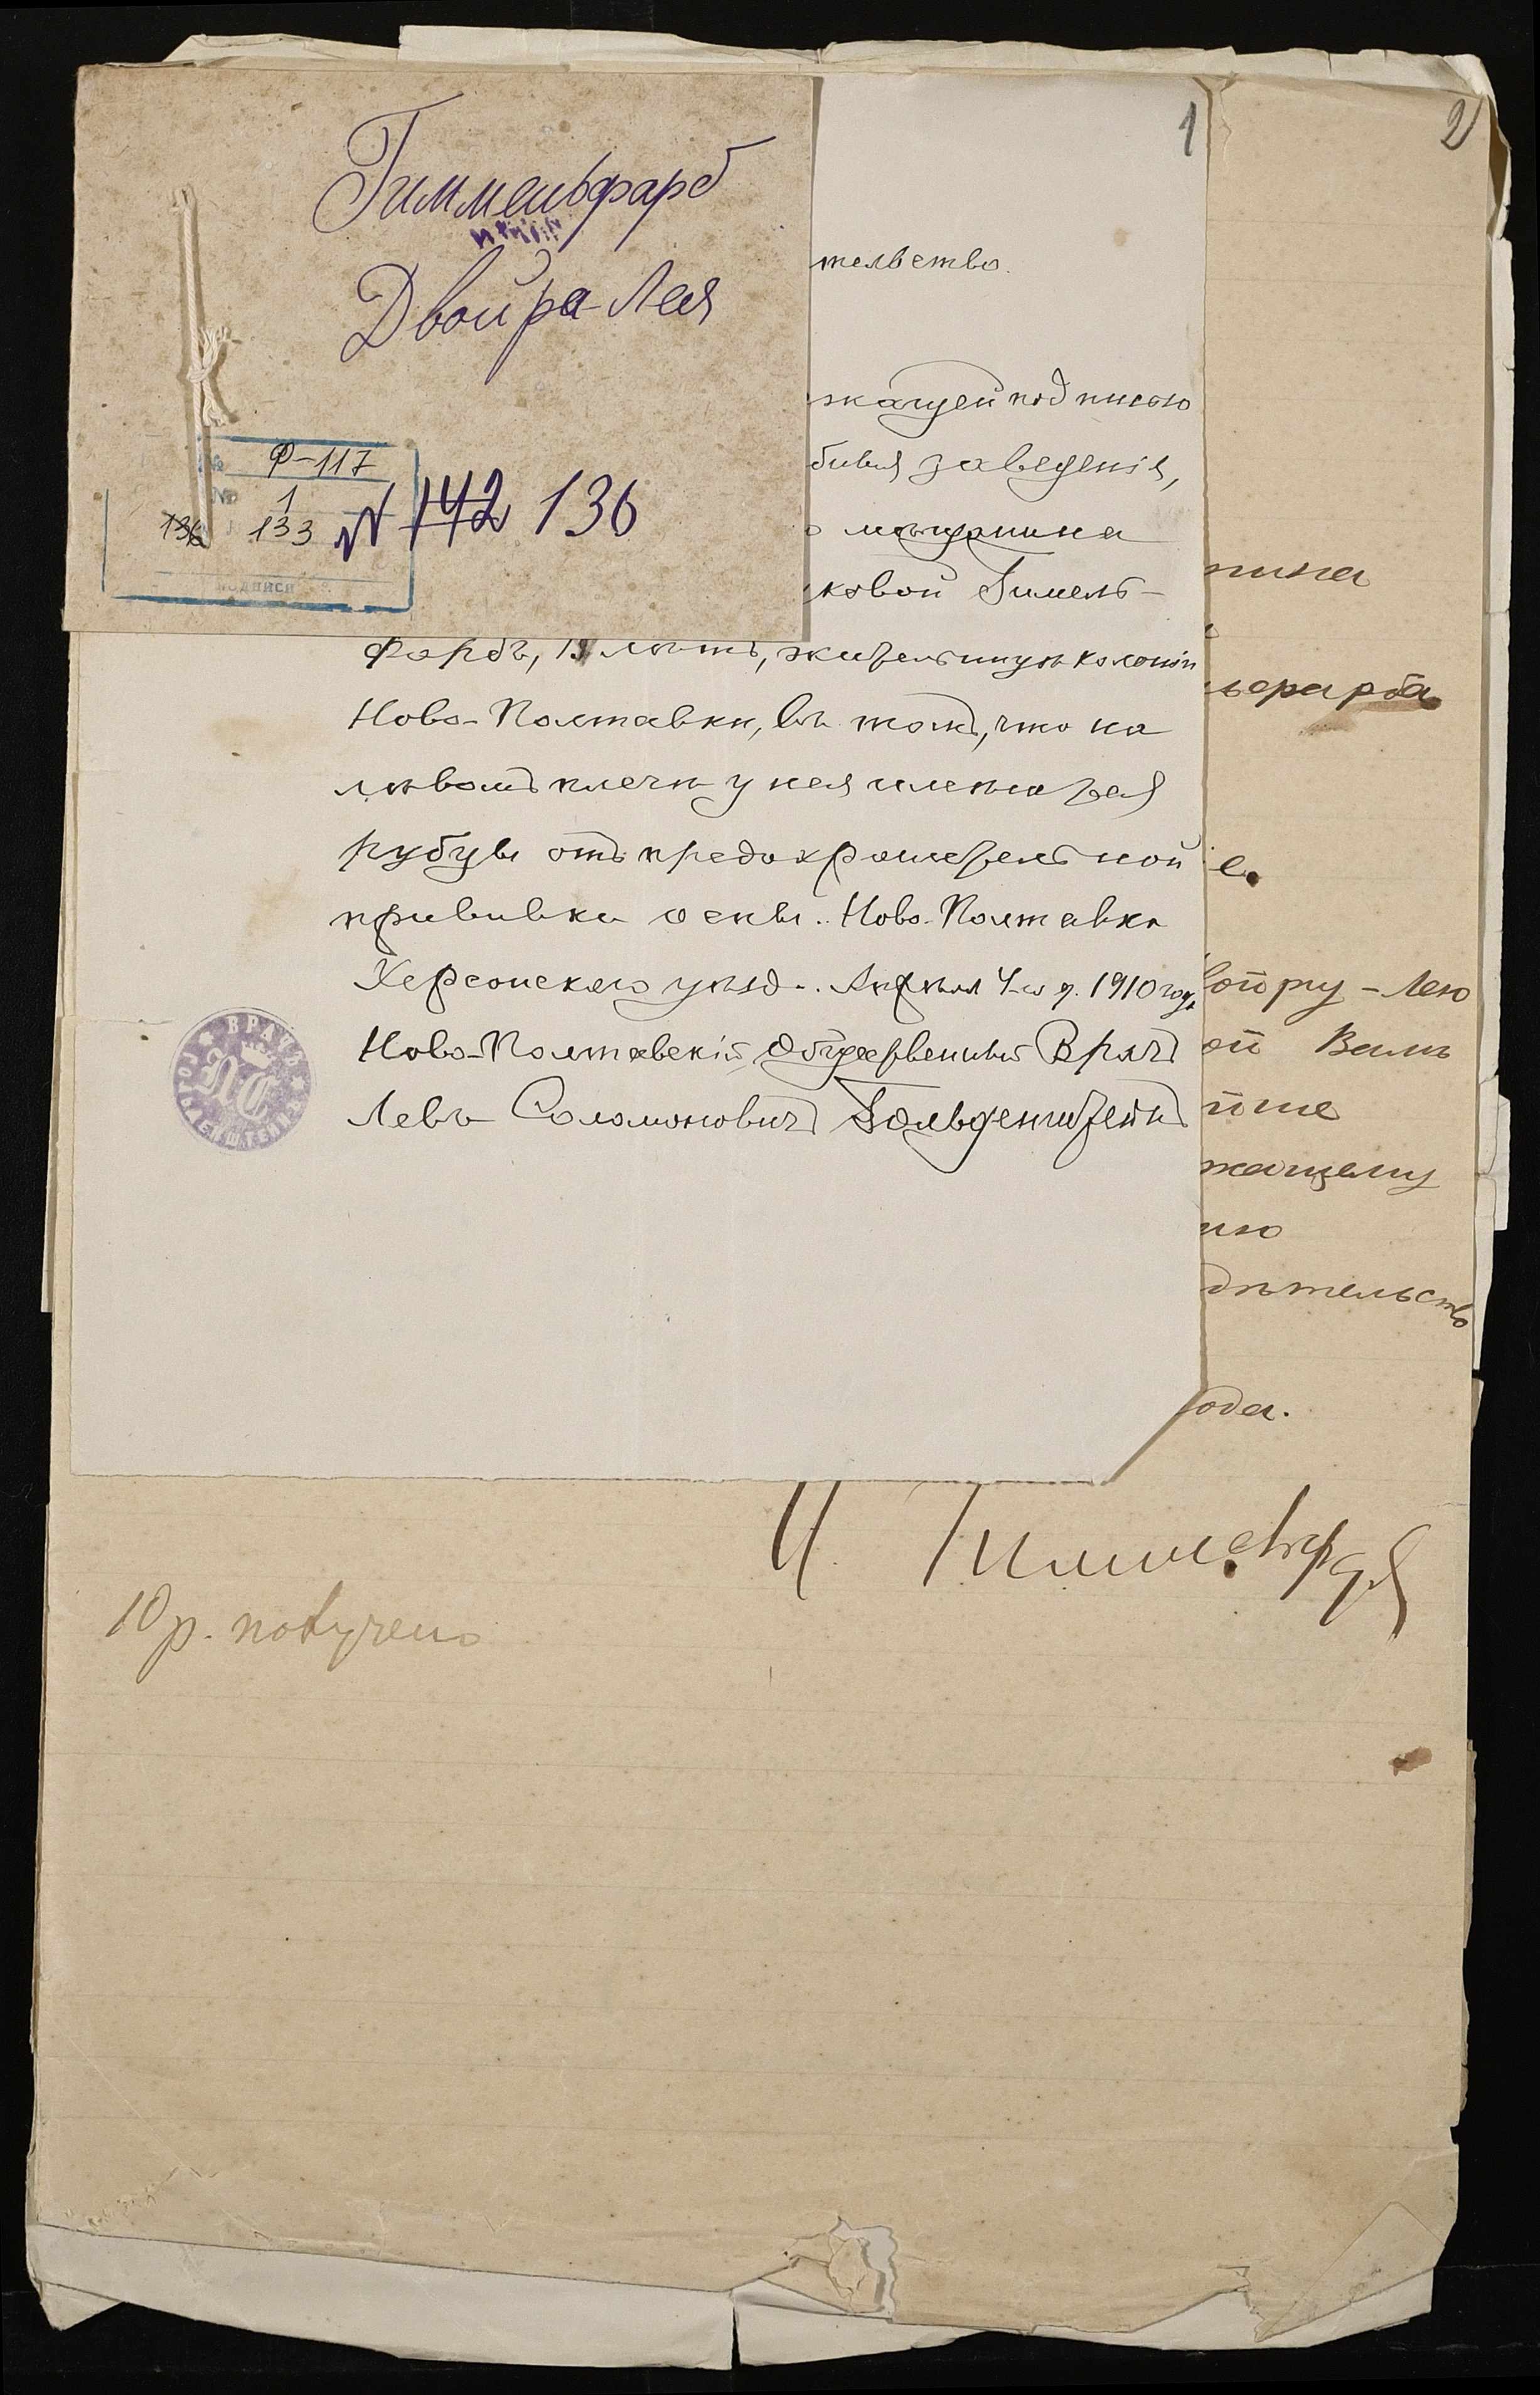 Гиммельфарб
Двойра-Лея
Ф-117
№ 1
136 133 № 142 136
подписи
1
тельство.
жащей подписью
бивая заведенія,
мѣщанина
ковой Гимель-
фарбъ, 13 лѣтъ, жительницѣ колоніи
Ново-Полтавки, въ томъ, что на
лѣвомъ плечѣ у нея имѣются
рубцы отъ предохранительной
прививки оспы. Ново-Полтавка
Херсонскаго уѣзд. Апрѣля 4-го д. 1910 года
Ново-Полтавскій Общественный Врачъ
Левъ Соломоновичъ Гольденштейнъ
ВРАЧЪ
2
нина
ьфарба
е.
войру-Лею
ой Вамъ
йше
жащему
ию
дѣтельство
ода.
И. Гиммельфарб
10 р. получено